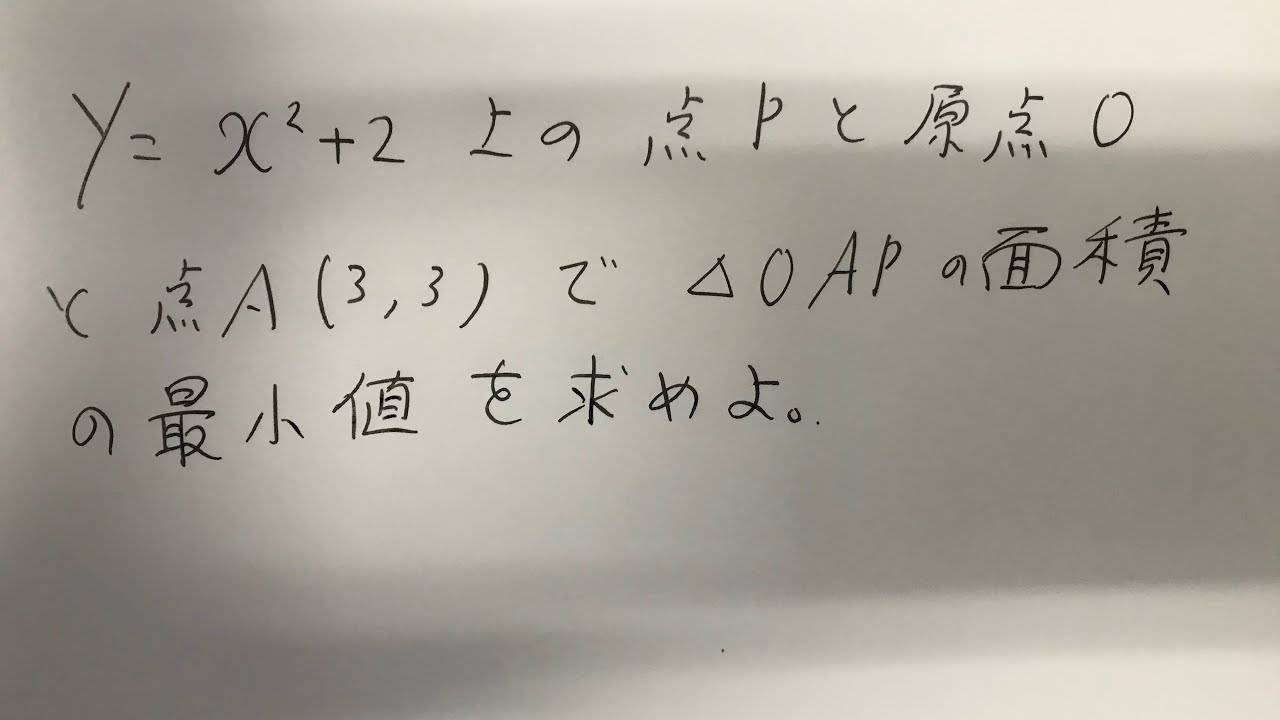 y = x²+2 上の点Pと原点O
と点A(3,3)で △OAPの面積
の最小値を求めよ。